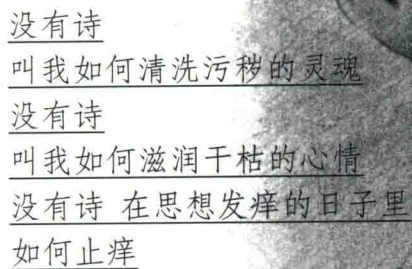 没有诗
叫我如何清洗污秽的灵魂
没有诗
叫我如何滋润干枯的心情
没有诗 在思想发痒的日子里
如何止痒